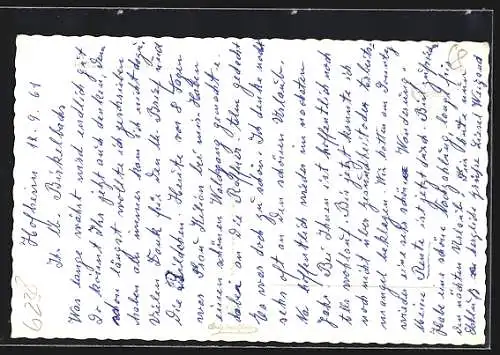 Hofheim 12.9.61
Ihr lb. Birkelbachs
Was lange währt wird endlich gut
So könnt Ihr jetzt auch denken, denn
schon längst wollte ich geschrieben
haben aber immer kam ich nicht dazu.
Vielen Dank für den lb. Brief und
die Bildchen. Heute vor 8 Tagen
war Frau Simon bei mir. Haben
einen schönen Waldgang gemacht u.
dabei an die Rothaus gedacht
Es war doch zu schön. Ich denke noch
sehr oft an den schönen Urlaub.
Na hoffentlich wieder im nächsten
Jahr. Bei Ihnen ist hoffentlich noch
alles wohlauf. Bis jetzt konnte ich
noch nicht über gesundheitlichen
mangel beklagen. Wir hatten am Sonntag
wieder eine sehr schöne Wanderung
Meine Rente ist jetzt durch.
Habe eine schöne Nachzahlung
den nächsten Urlaub. Ein gutes
Schluß u. herzliche Grüße Liesel Weigand
6238